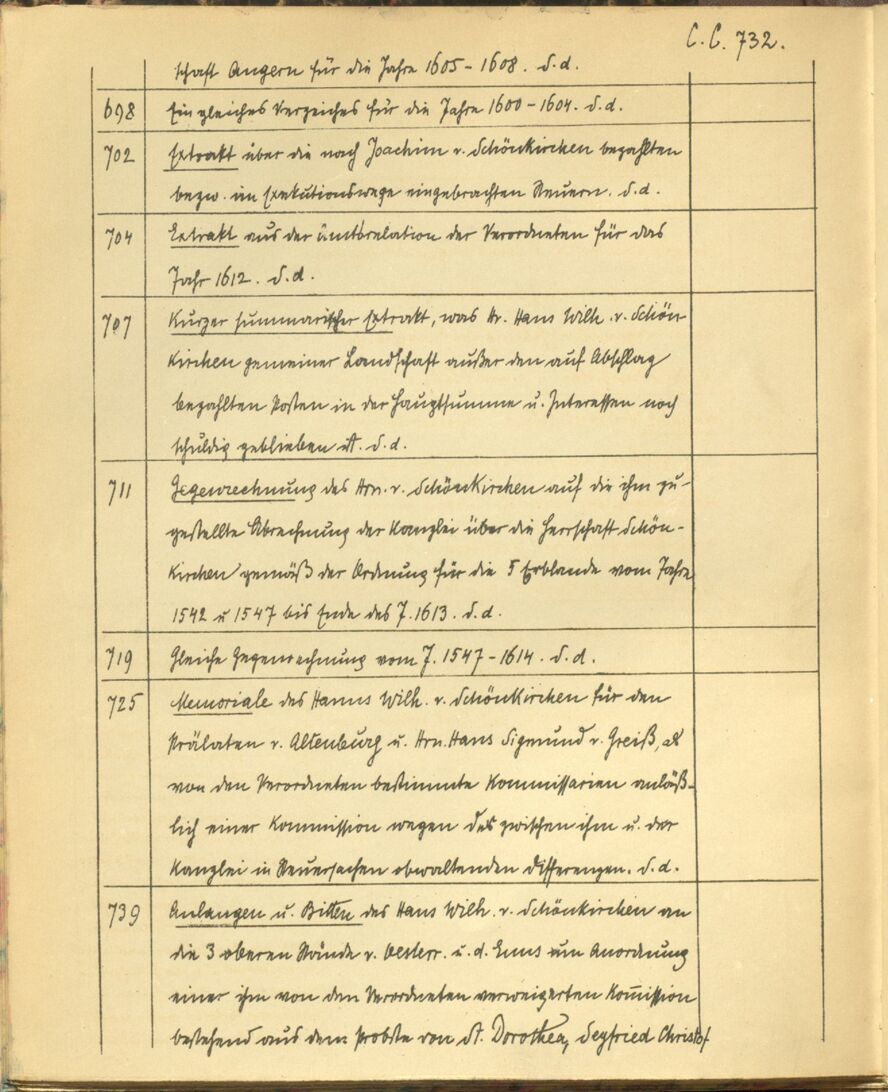 C. C. 732.
schaft Angern für die Jahre 1605 - 1608. s. d.
698 Ein gleiches Verzeichnis für die Jahre 1600 - 1604. s. d.
702 Extrakt über die nach Joachim v. Schönkirchen bezahlten
bezw. im Exekutionswege eingebrachten Steuern. s. d.
704 Extrakt aus der Amtsrelation der Verordneten für das
Jahr 1612. s. d.
707 Kurzer summarischer Extrakt, was Hr. Hans Wilh. v. Schön-
kirchen gemeiner Landschaft außer den auf Abschlag
bezahlten Posten in der Hauptsumme u. Interessen noch
schuldig geblieben ist. s. d.
711 Gegenrechnung des Hrn. v. Schönkirchen auf die ihm zu-
gestellte Abrechnung der Kanzlei über die Herrschaft Schön-
kirchen gemäß der Ordnung für die 5 Erblande vom Jahre
1542 u 1547 bis Ende des J. 1613. s. d.
719 Gleiche Gegenrechnung vom J. 1547 - 1614. s. d.
725 Memoriale des Hanns Wilh. v. Schönkirchen für den
Prälaten v. Altenburg u. Hrn. Hans Sigmund v. Greiß, als
von den Verordneten bestimmte Kommissarien anläß-
lich einer Kommission wegen der zwischen ihm u. der
Kanzlei in Steuersachen obwaltenden Differenzen. s. d.
739 Anlangen u. Bitten des Hans Wilh. v. Schönkirchen an
die 3 oberen Stände v. Oesterr. u. d. Enns um Anordnung
einer ihm von den Verordneten verweigerten Kom̅ission
bestehend aus dem Probste von St. Dorothea, Seyfried Christof